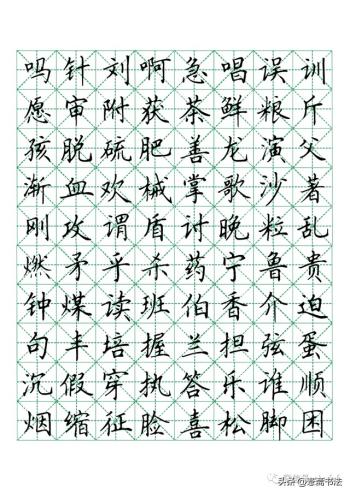 吗针刘啊急唱误训
愿审附获茶鲜粮斤
孩脱硫肥善龙演父
渐血欢械掌歌沙著
刚攻谓盾讨晚粒乱
燃矛乎杀药宁鲁贵
钟煤读班伯香介迫
句丰培握兰担弦蛋
沉假穿执答乐谁顺
烟缩征脸喜松脚困